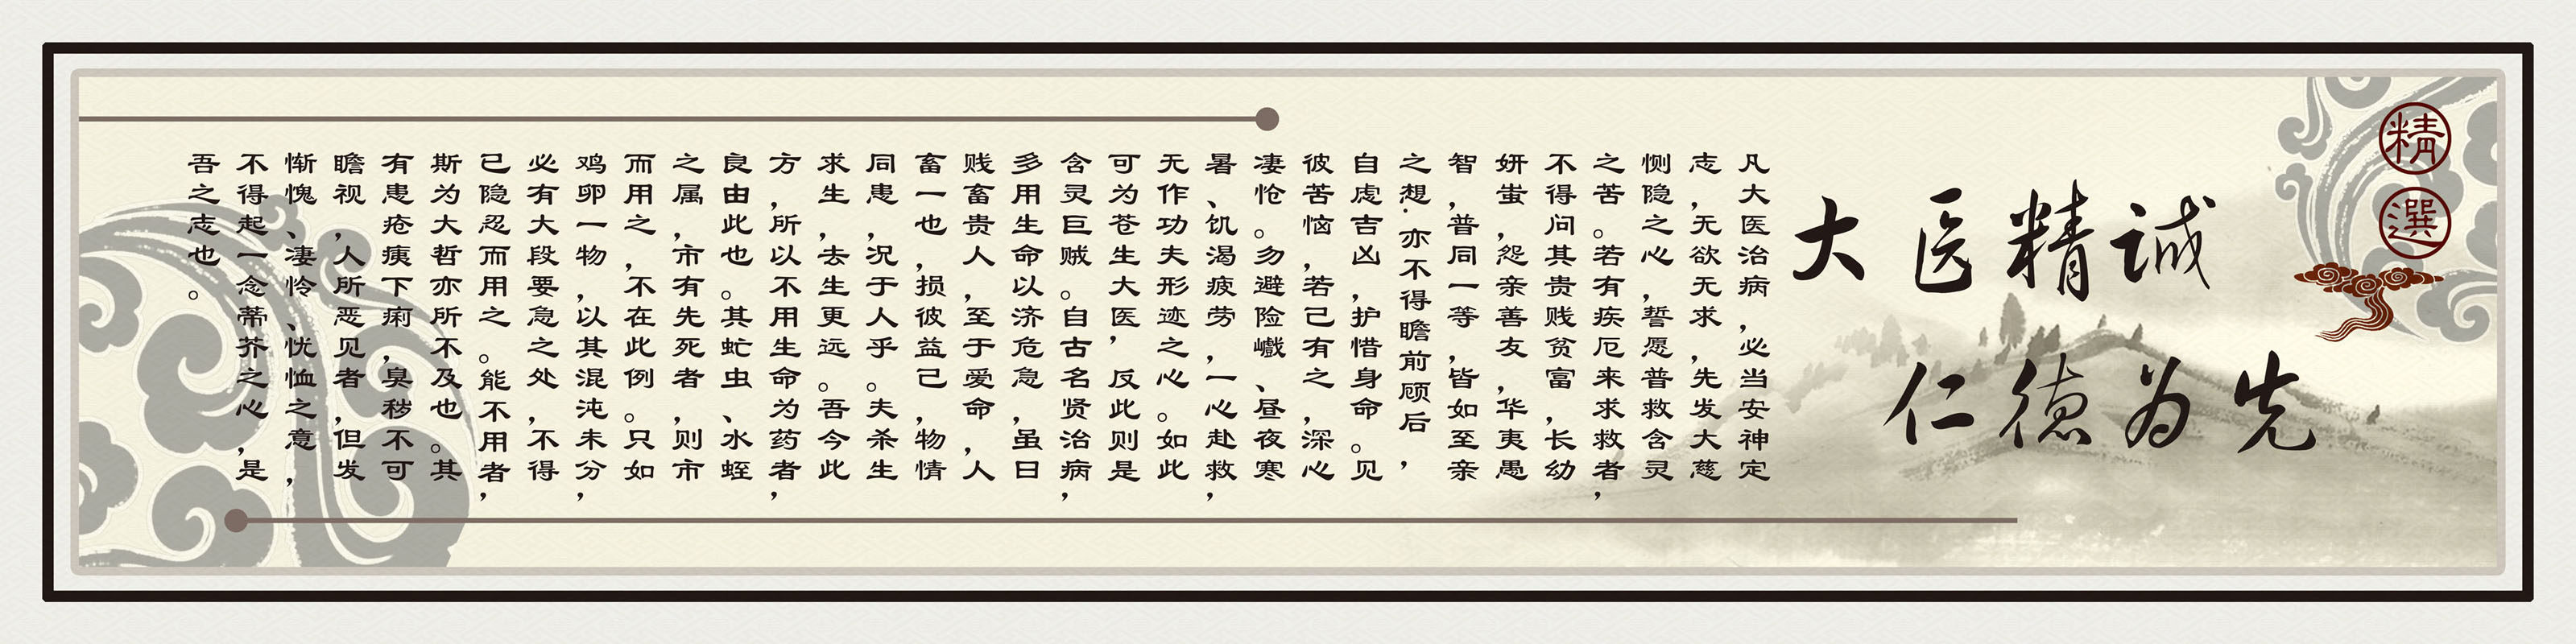 精選
大医精诚
仁德为先
凡大医治病，必当安神定
志，无欲无求，先发大慈
恻隐之心，誓愿普救含灵
之苦。若有疾厄来求救者，
不得问其贵贱贫富，长幼
妍蚩，怨亲善友，华夷愚
智，普同一等，皆如至亲
之想．亦不得瞻前顾后，
自虑吉凶，护惜身命。见
彼苦恼，若己有之，深心
凄怆。勿避险巇、昼夜寒
暑、饥渴疲劳，一心赴救，
无作功夫形迹之心。如此
可为苍生大医，反此则是
含灵巨贼。自古名贤治病，
多用生命以济危急，虽曰
贱畜贵人，至于爱命，人
畜一也，损彼益己，物情
同患，况于人乎。夫杀生
求生，去生更远。吾今此
方，所以不用生命为药者，
良由此也。其虻虫、水蛭
之属，市有先死者，则市
而用之，不在此例。只如
鸡卵一物，以其混沌未分，
必有大段要急之处，不得
已隐忍而用之。能不用者，
斯为大哲亦所不及也。其
有患疮痍下痢，臭秽不可
瞻视，人所恶见者，但发
惭愧、凄怜、忧恤之意，
不得起一念蒂芥之心，是
吾之志也。